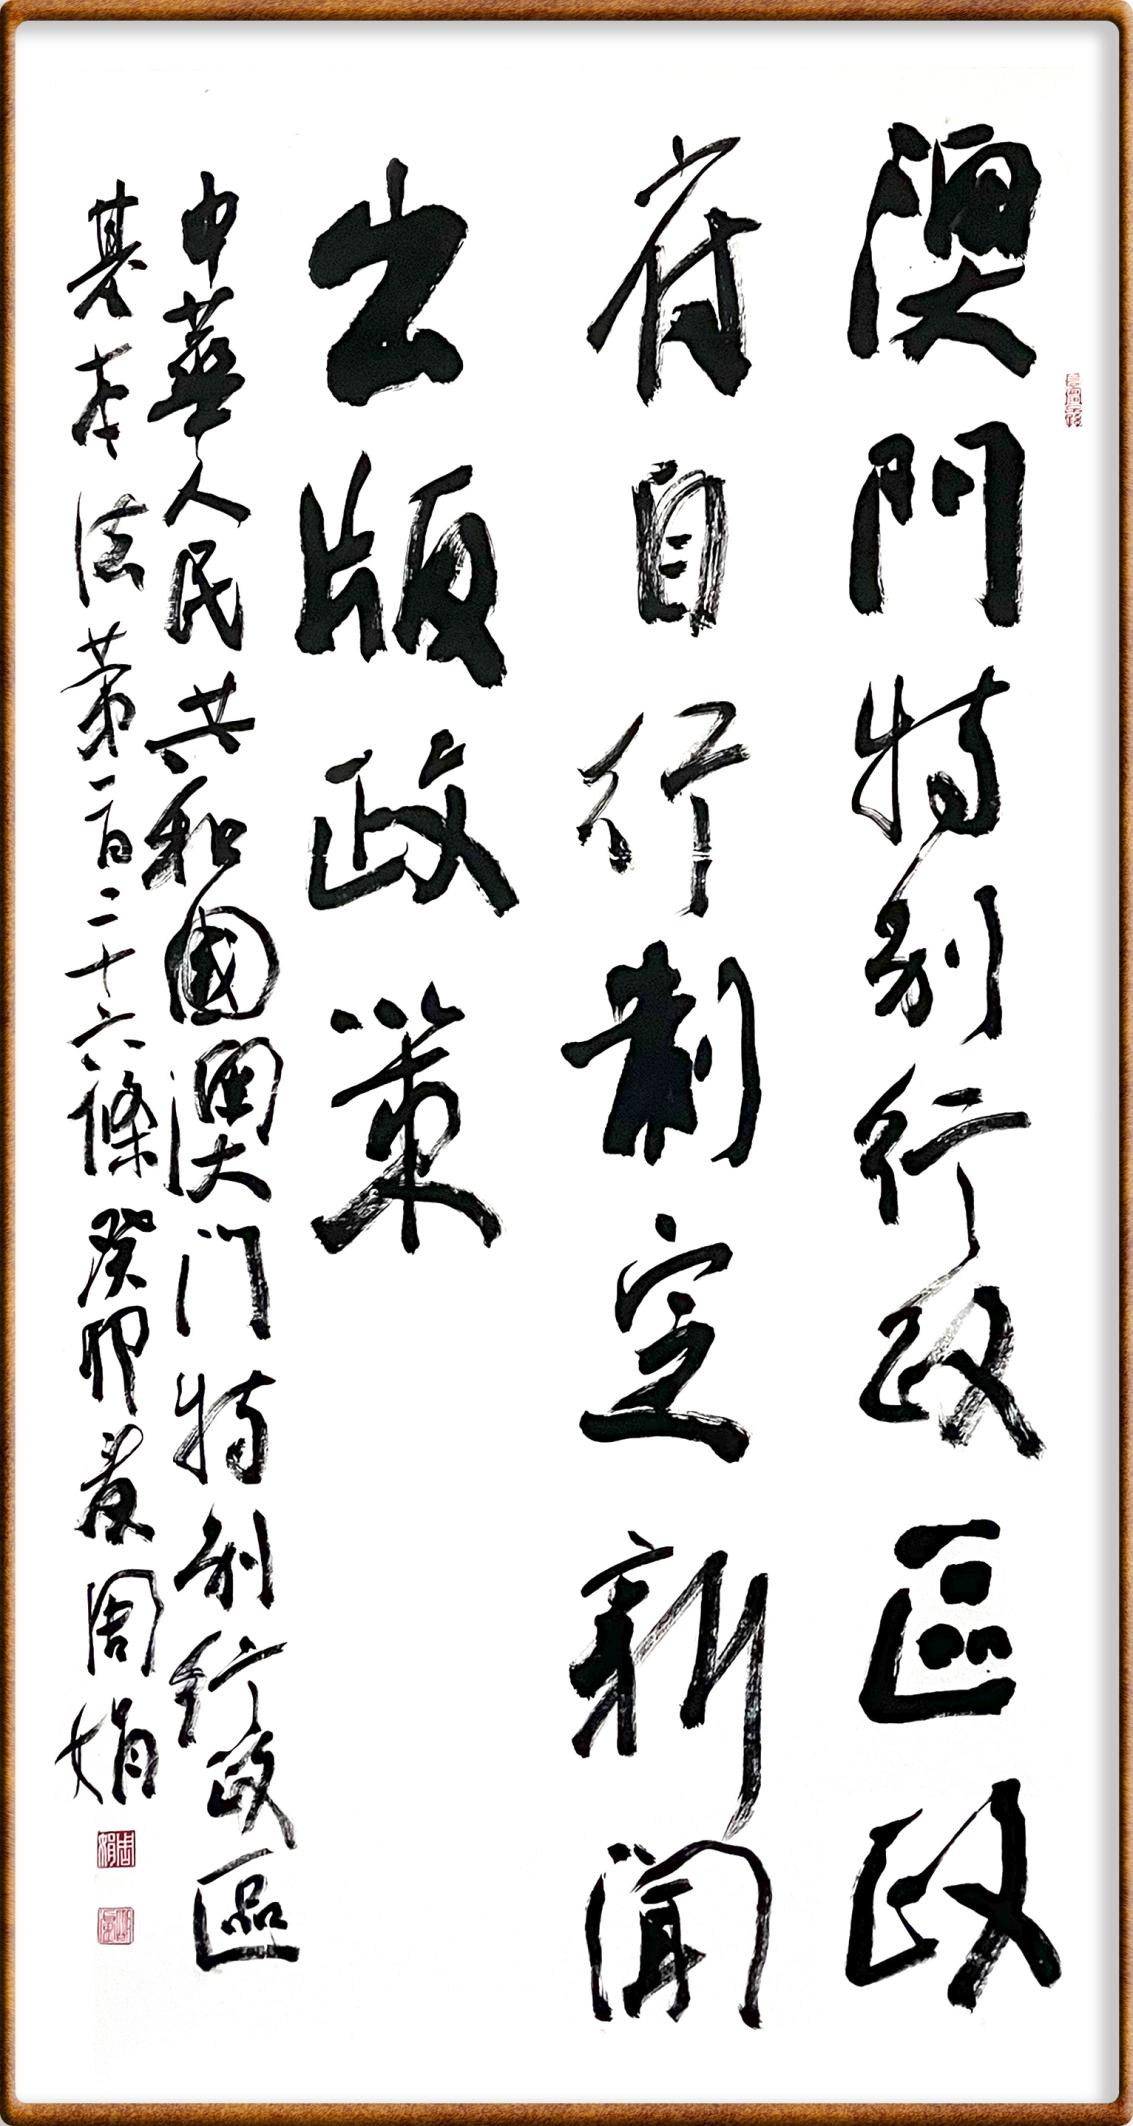 澳門特别行政區政
府自行制定新聞
出版政策
中華人民共和國澳门特别行政區
基本法第一百二十六條癸卯夏周娟
周娟